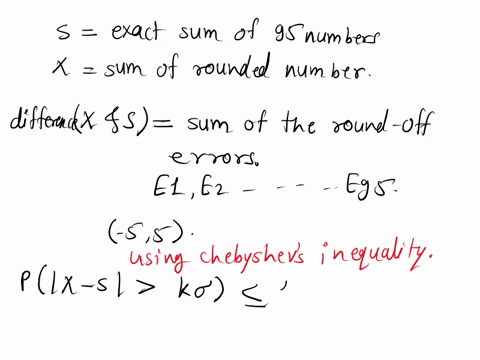 S = exact sum of 95 numbers
X = sum of rounded number.
difference(X & S) = sum of the round-off
errors.
E1, E2 - - - - - E95.
(-5, 5).
using chebyshev's inequality.
P(|X-S| > kσ) ≤ '